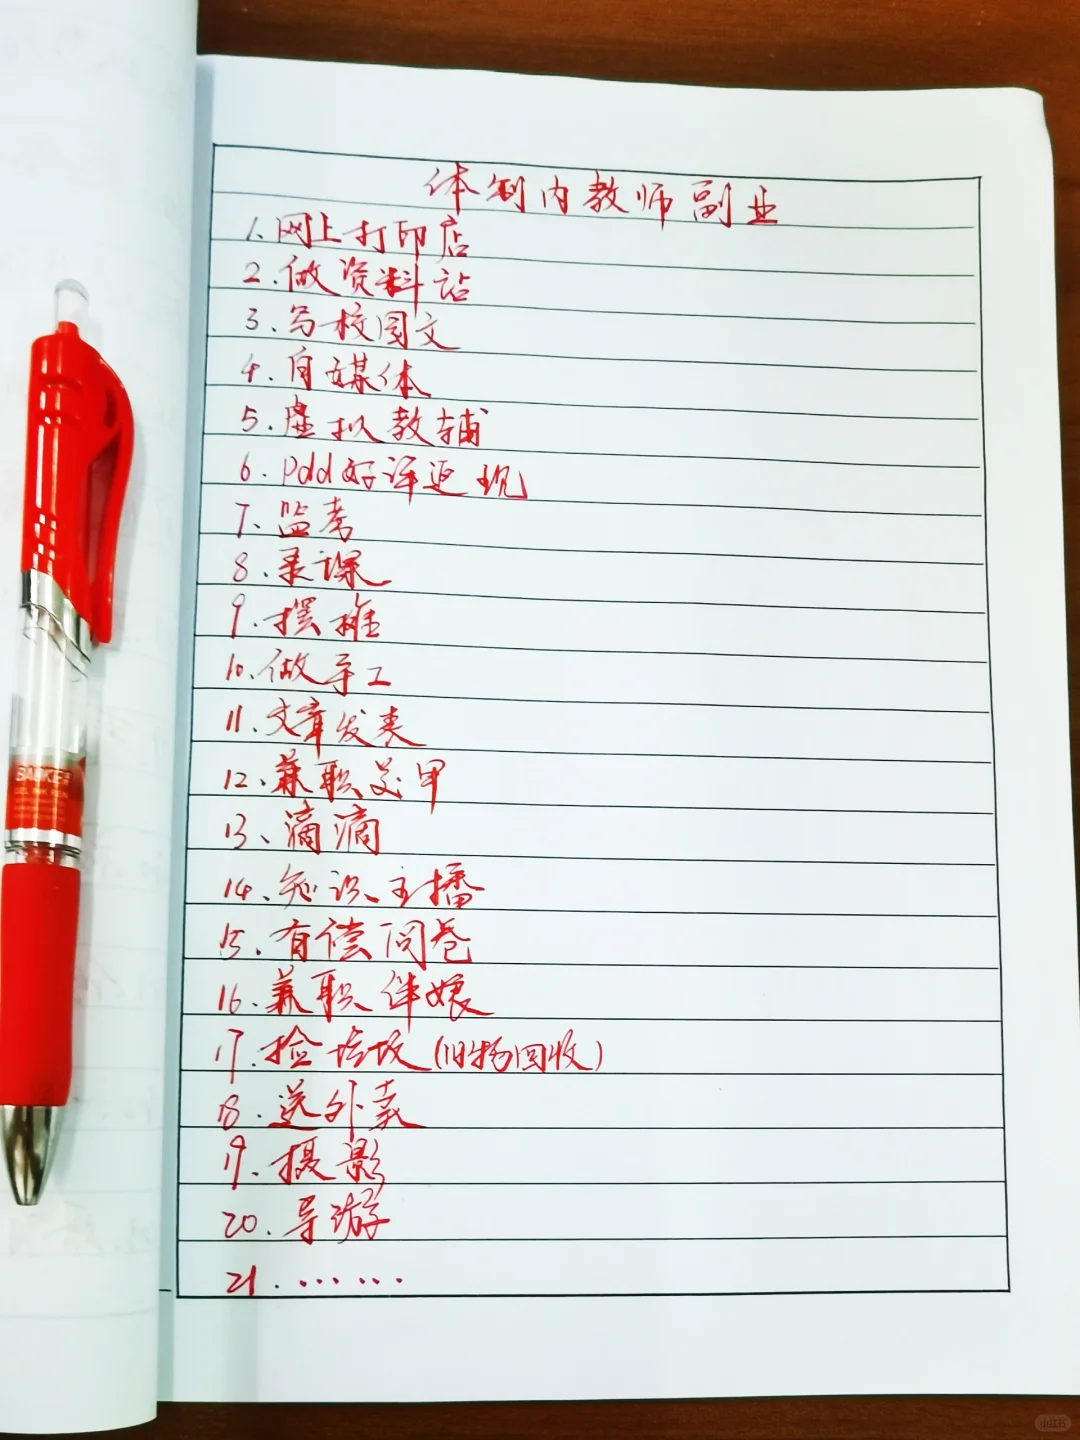 体制内教师副业
1.网上打印店
2.做资料站
3.写校园文
4.自媒体
5.虚拟教辅
6.Pdd好评返现
7、监考
8.录课
9.摆摊
10.做手工
11.文章发表
12.兼职美甲
13、滴滴
14.知识主播
15.有偿问卷
16.兼职伴娘
17.捡垃圾(旧物回收)
18.送外卖
19.摄影
20.导游
21.……
BAOKE
GEL INK PEN
小红书